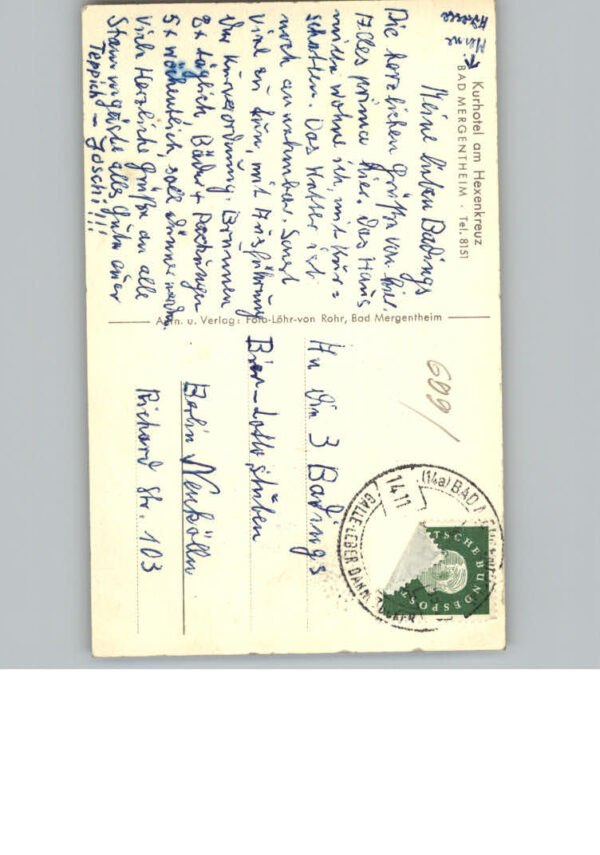 Kurhotel am Hexenkreuz
BAD MERGENTHEIM · Tel. 8151
Meine
Adresse
Meine lieben Badings
Die herzlichen Grüße von hier.
Alles prima hier. Das Haus
wohne ich, mit Kur=
schatten. Das Wetter ist
noch annehmbar. Sonst
viel zu tun, mit Ausführung
der Kurverordnung. Brunnen
2x täglich, Bäder + Packungen
5x wöchentlich, soll dünner werden.
Viele Herzliche Grüße an alle
Stammgäste alles Gute euer
Teppich - Joschi!!!
Aufn. u. Verlag: Foto-Löhr-von Rohr, Bad Mergentheim
609/
An die 3 Badings
Bier-Lotto Stuben
Berlin Neukölln
Richard Str. 103
(14a) BAD MERGENTHEIM
14.11
GALLE-LEBER DARM ZUCKER
DEUTSCHE BUNDESPOST